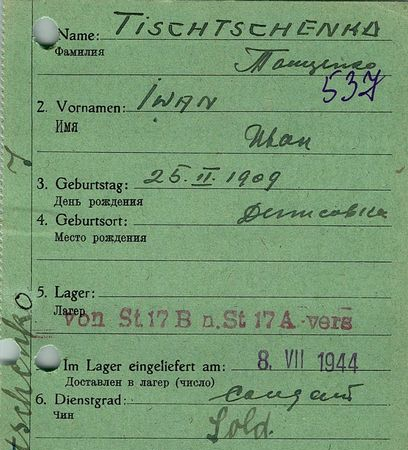 Name: TISCHTSCHENKO
Фамилия
Тищенко
537
2. Vornamen: IWAN
Имя
Иван
3. Geburtstag: 25. II. 1909
День рождения
4. Geburtsort: Денисовка
Место рождения
5. Lager:
Лагер
von St 17 B n. St 17 A vers
Im Lager eingeliefert am: 8. VII 1944
Доставлен в лагер (число)
6. Dienstgrad: солдат
Чин
Sold.